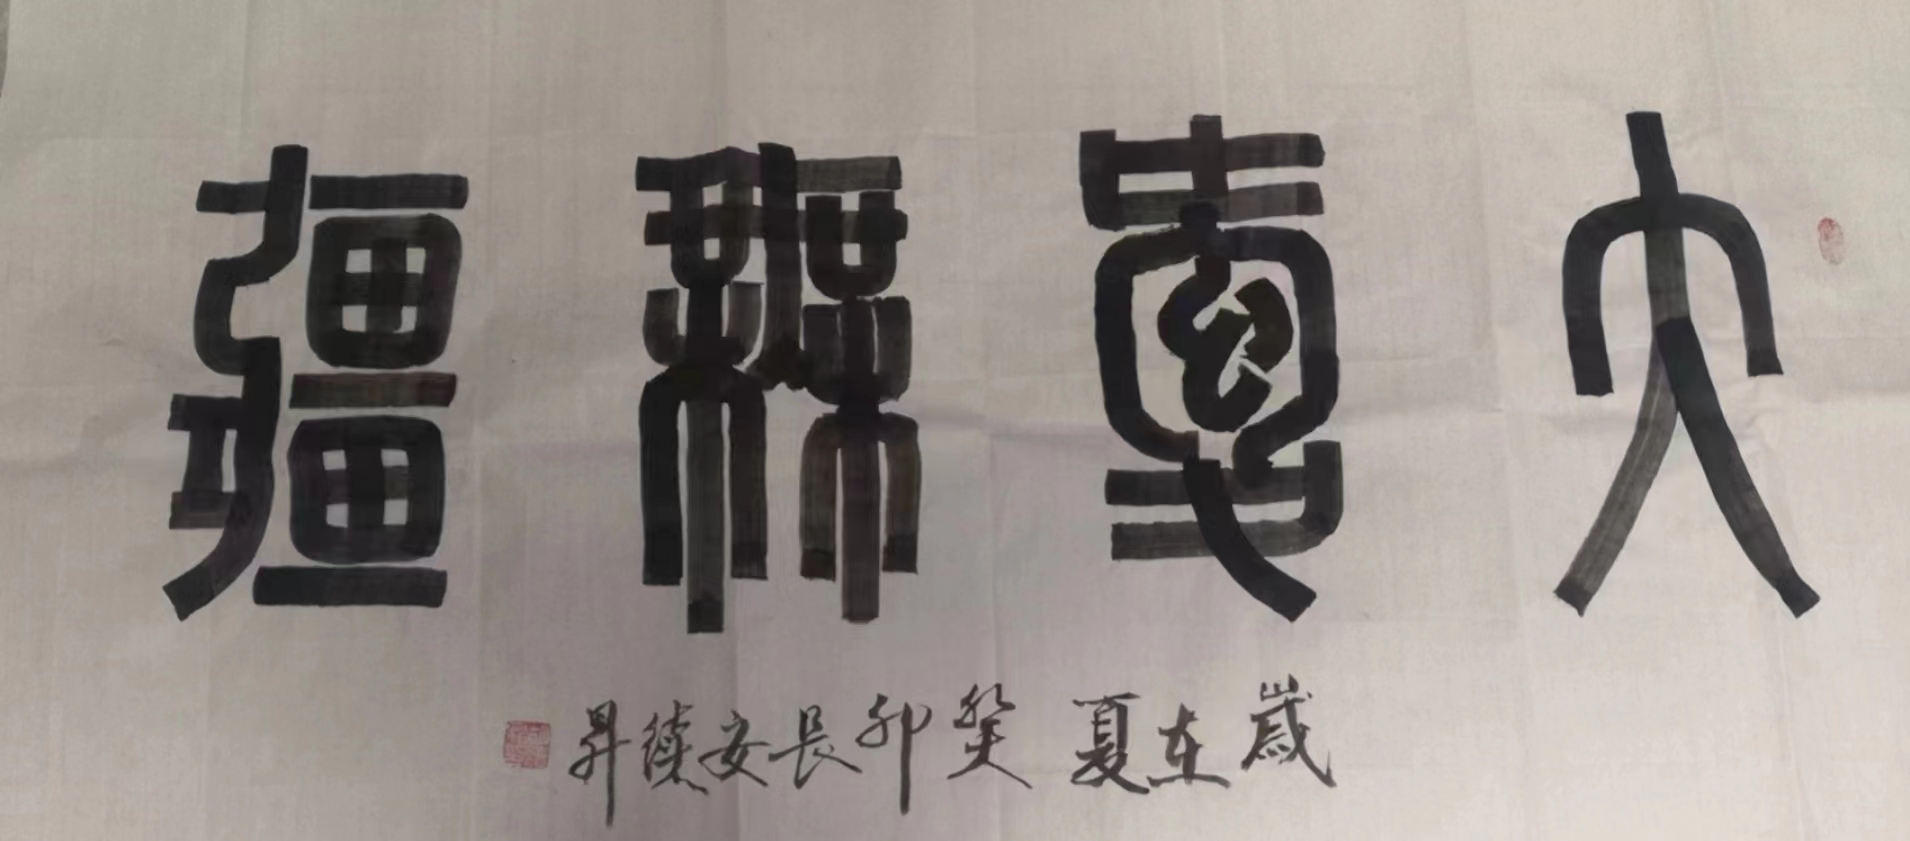 大爱無疆
歲在夏癸卯長安續昇